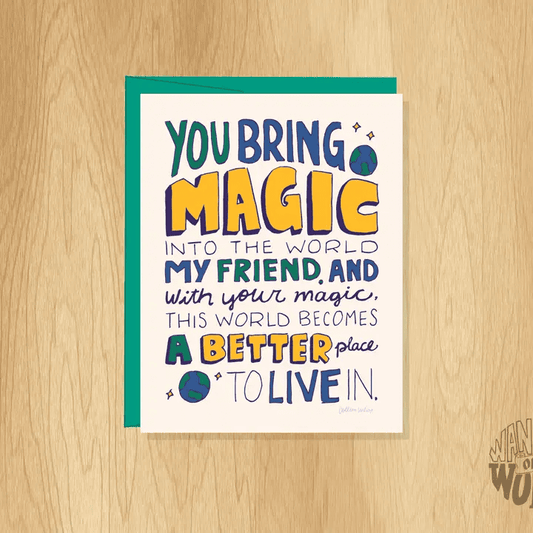 YOU BRING
MAGIC
INTO THE WORLD
MY FRIEND, AND
with your magic,
THIS WORLD BECOMES
A BETTER place
TO LIVE IN.